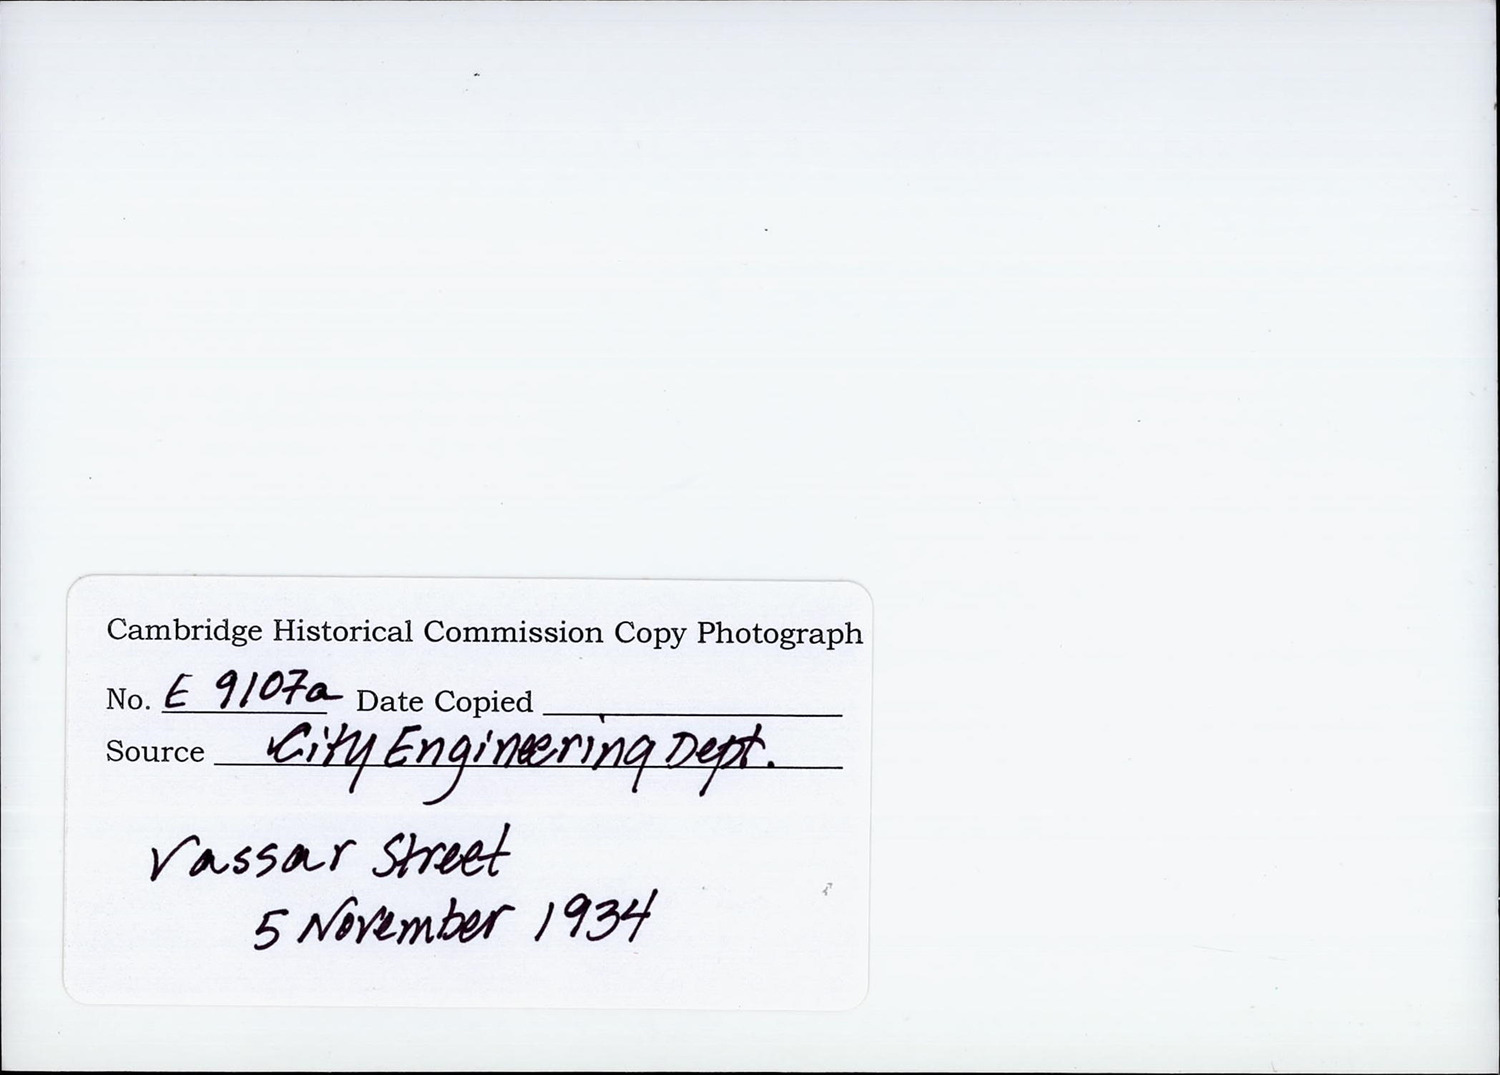 Cambridge Historical Commission Copy Photograph
No. E 9107a Date Copied
Source City Engineering Dept.
Vassar Street
5 November 1934